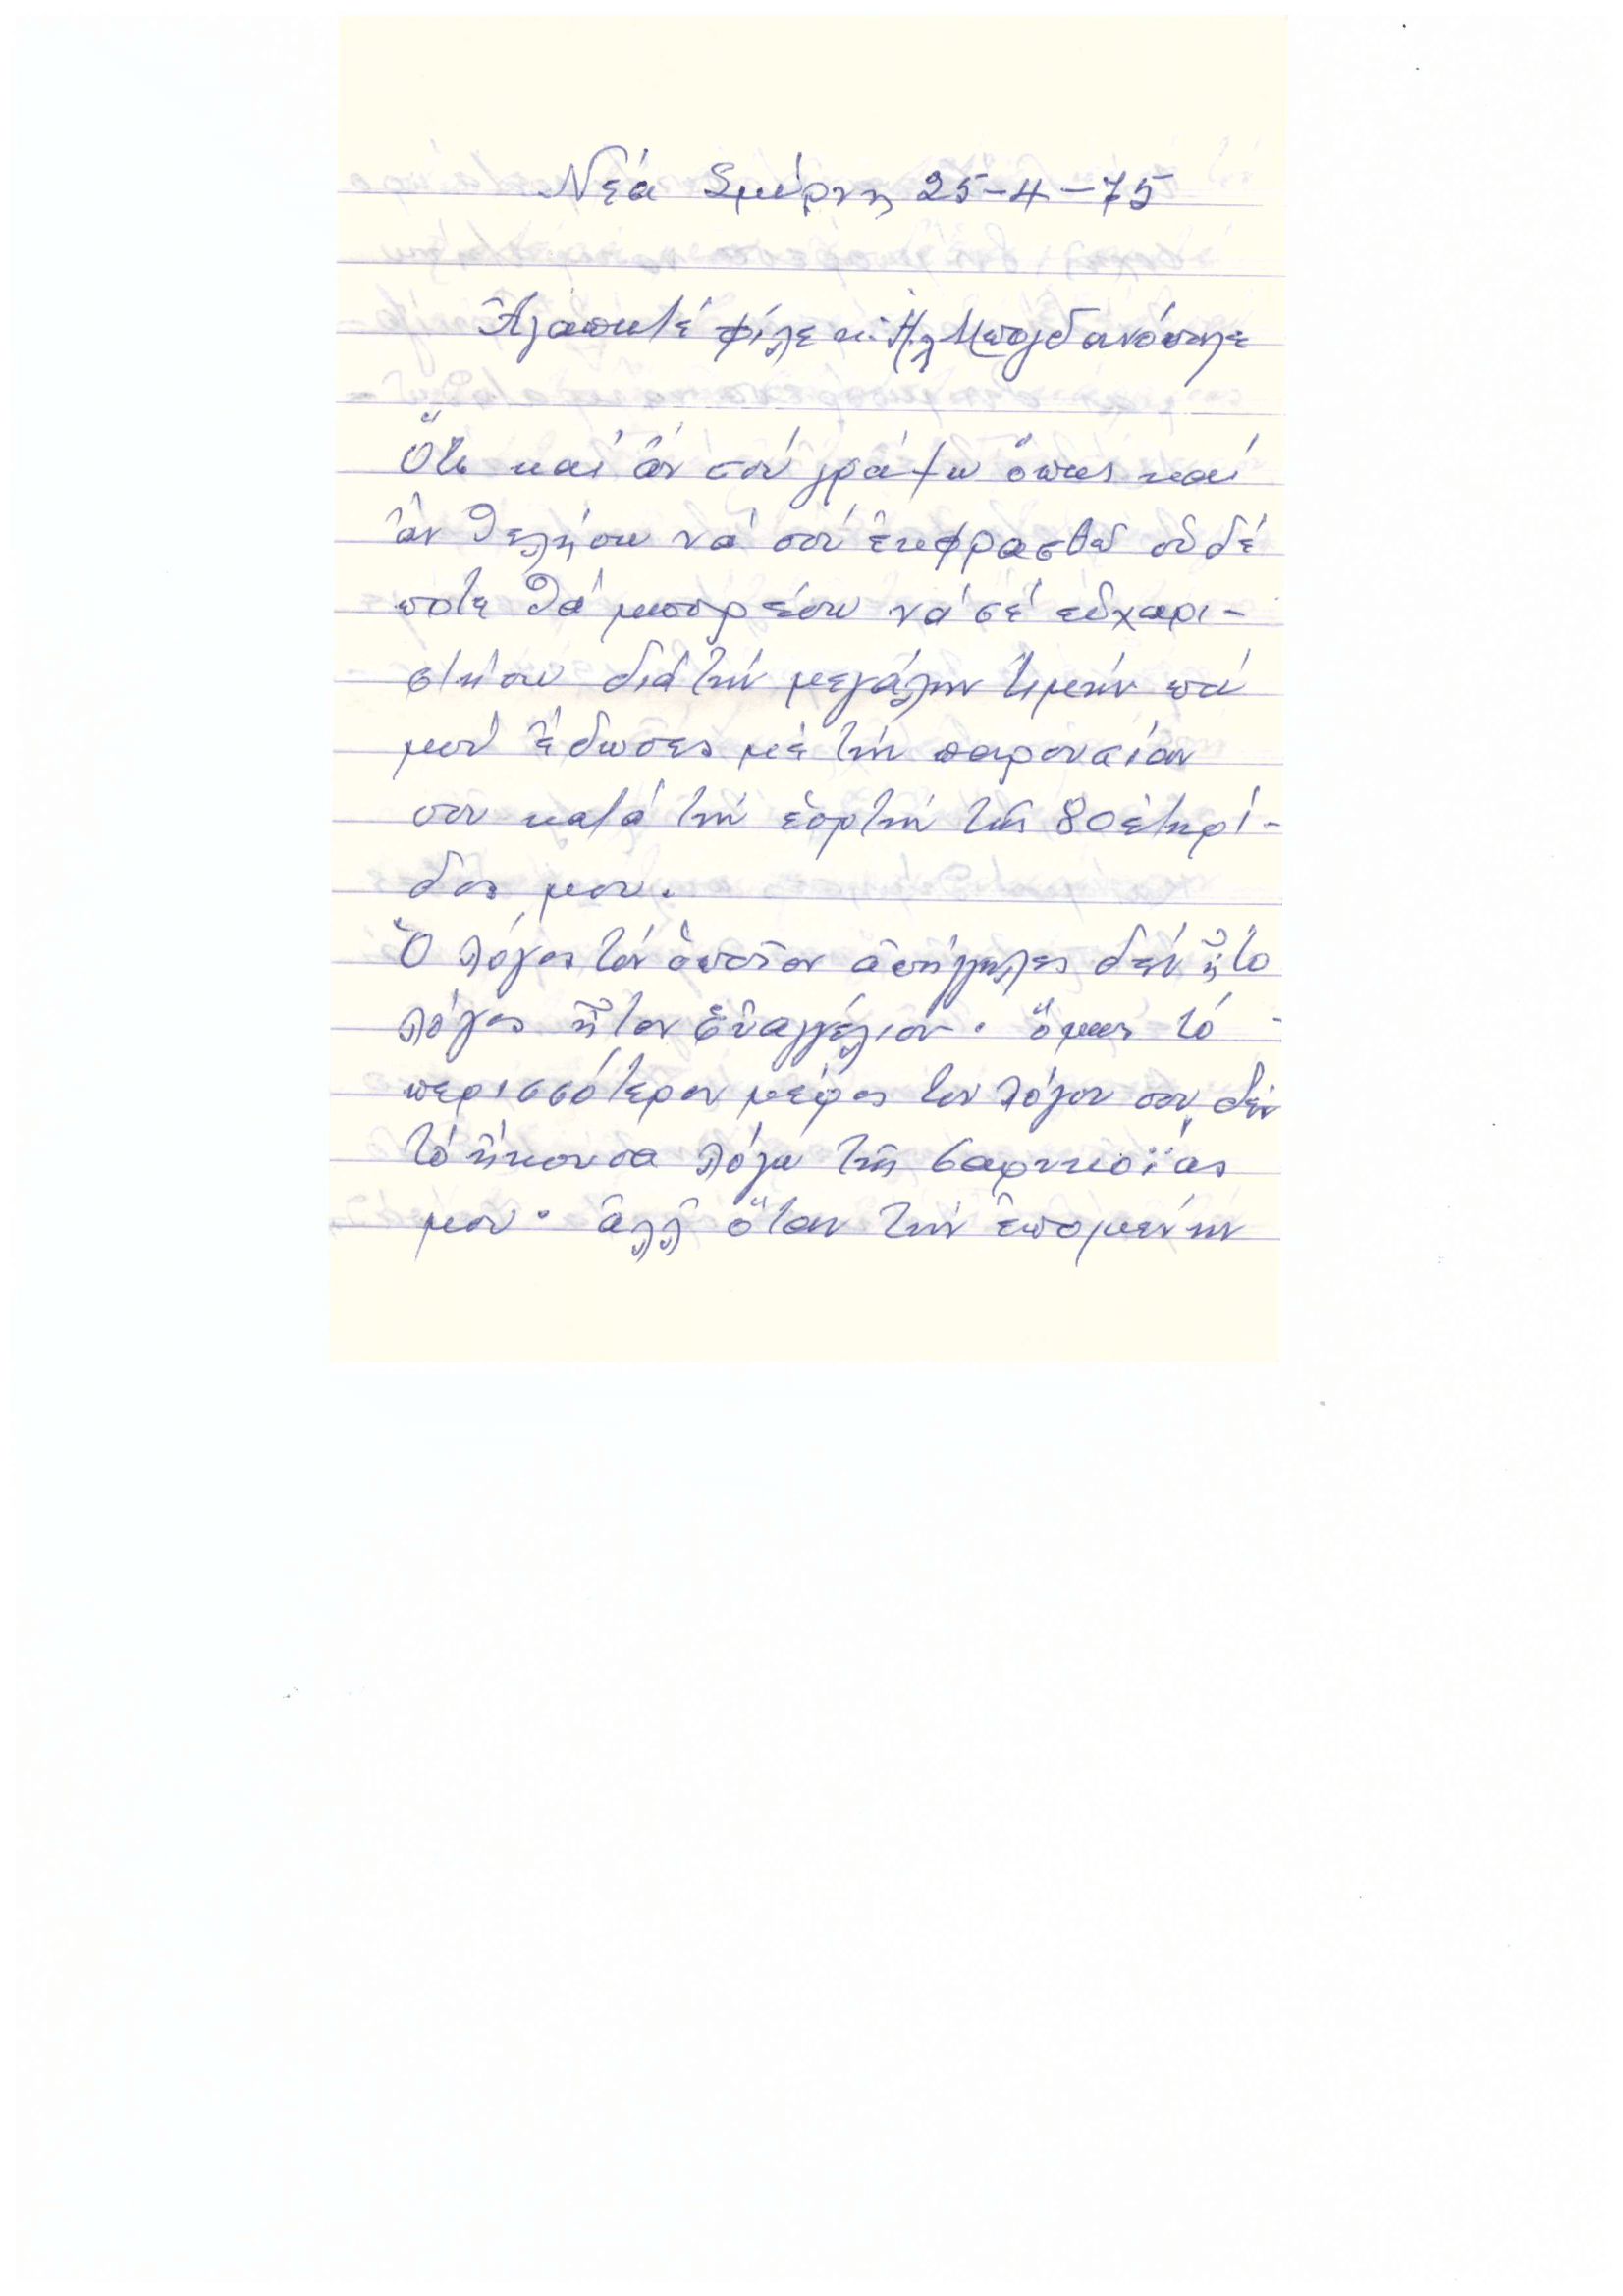 Νέα Σμύρνη 25-4-75
Ἀγαπητέ φίλε κ. Ἠλ Μπογδανόπουλε
Ὅτι καί ἄν σοῦ γράψω ὅπως καί
ἄν θελήσω νά σοῦ ἐκφρασθῶ οὐδέ
ποτε θά μπορέσω νά σέ εὐχαρι-
στήσω διά τήν μεγάλην τιμήν πού
μοῦ ἔδωσες μέ τήν παρουσίαν
σου κατά τήν ἑορτήν τῆς 80ετηρί-
δος μου.
Ὁ λόγος τόν ὁποῖον ἀπήγγειλες δέν ἦτο
λόγος ἦτον Εὐαγγέλιον. ὅμως τό
περισσότερον μέρος του λόγου σου δέν
τό ἤκουσα λόγω τῆς βαρηκοΐας
μου. ἀλλ ὅταν τήν ἐπομένην